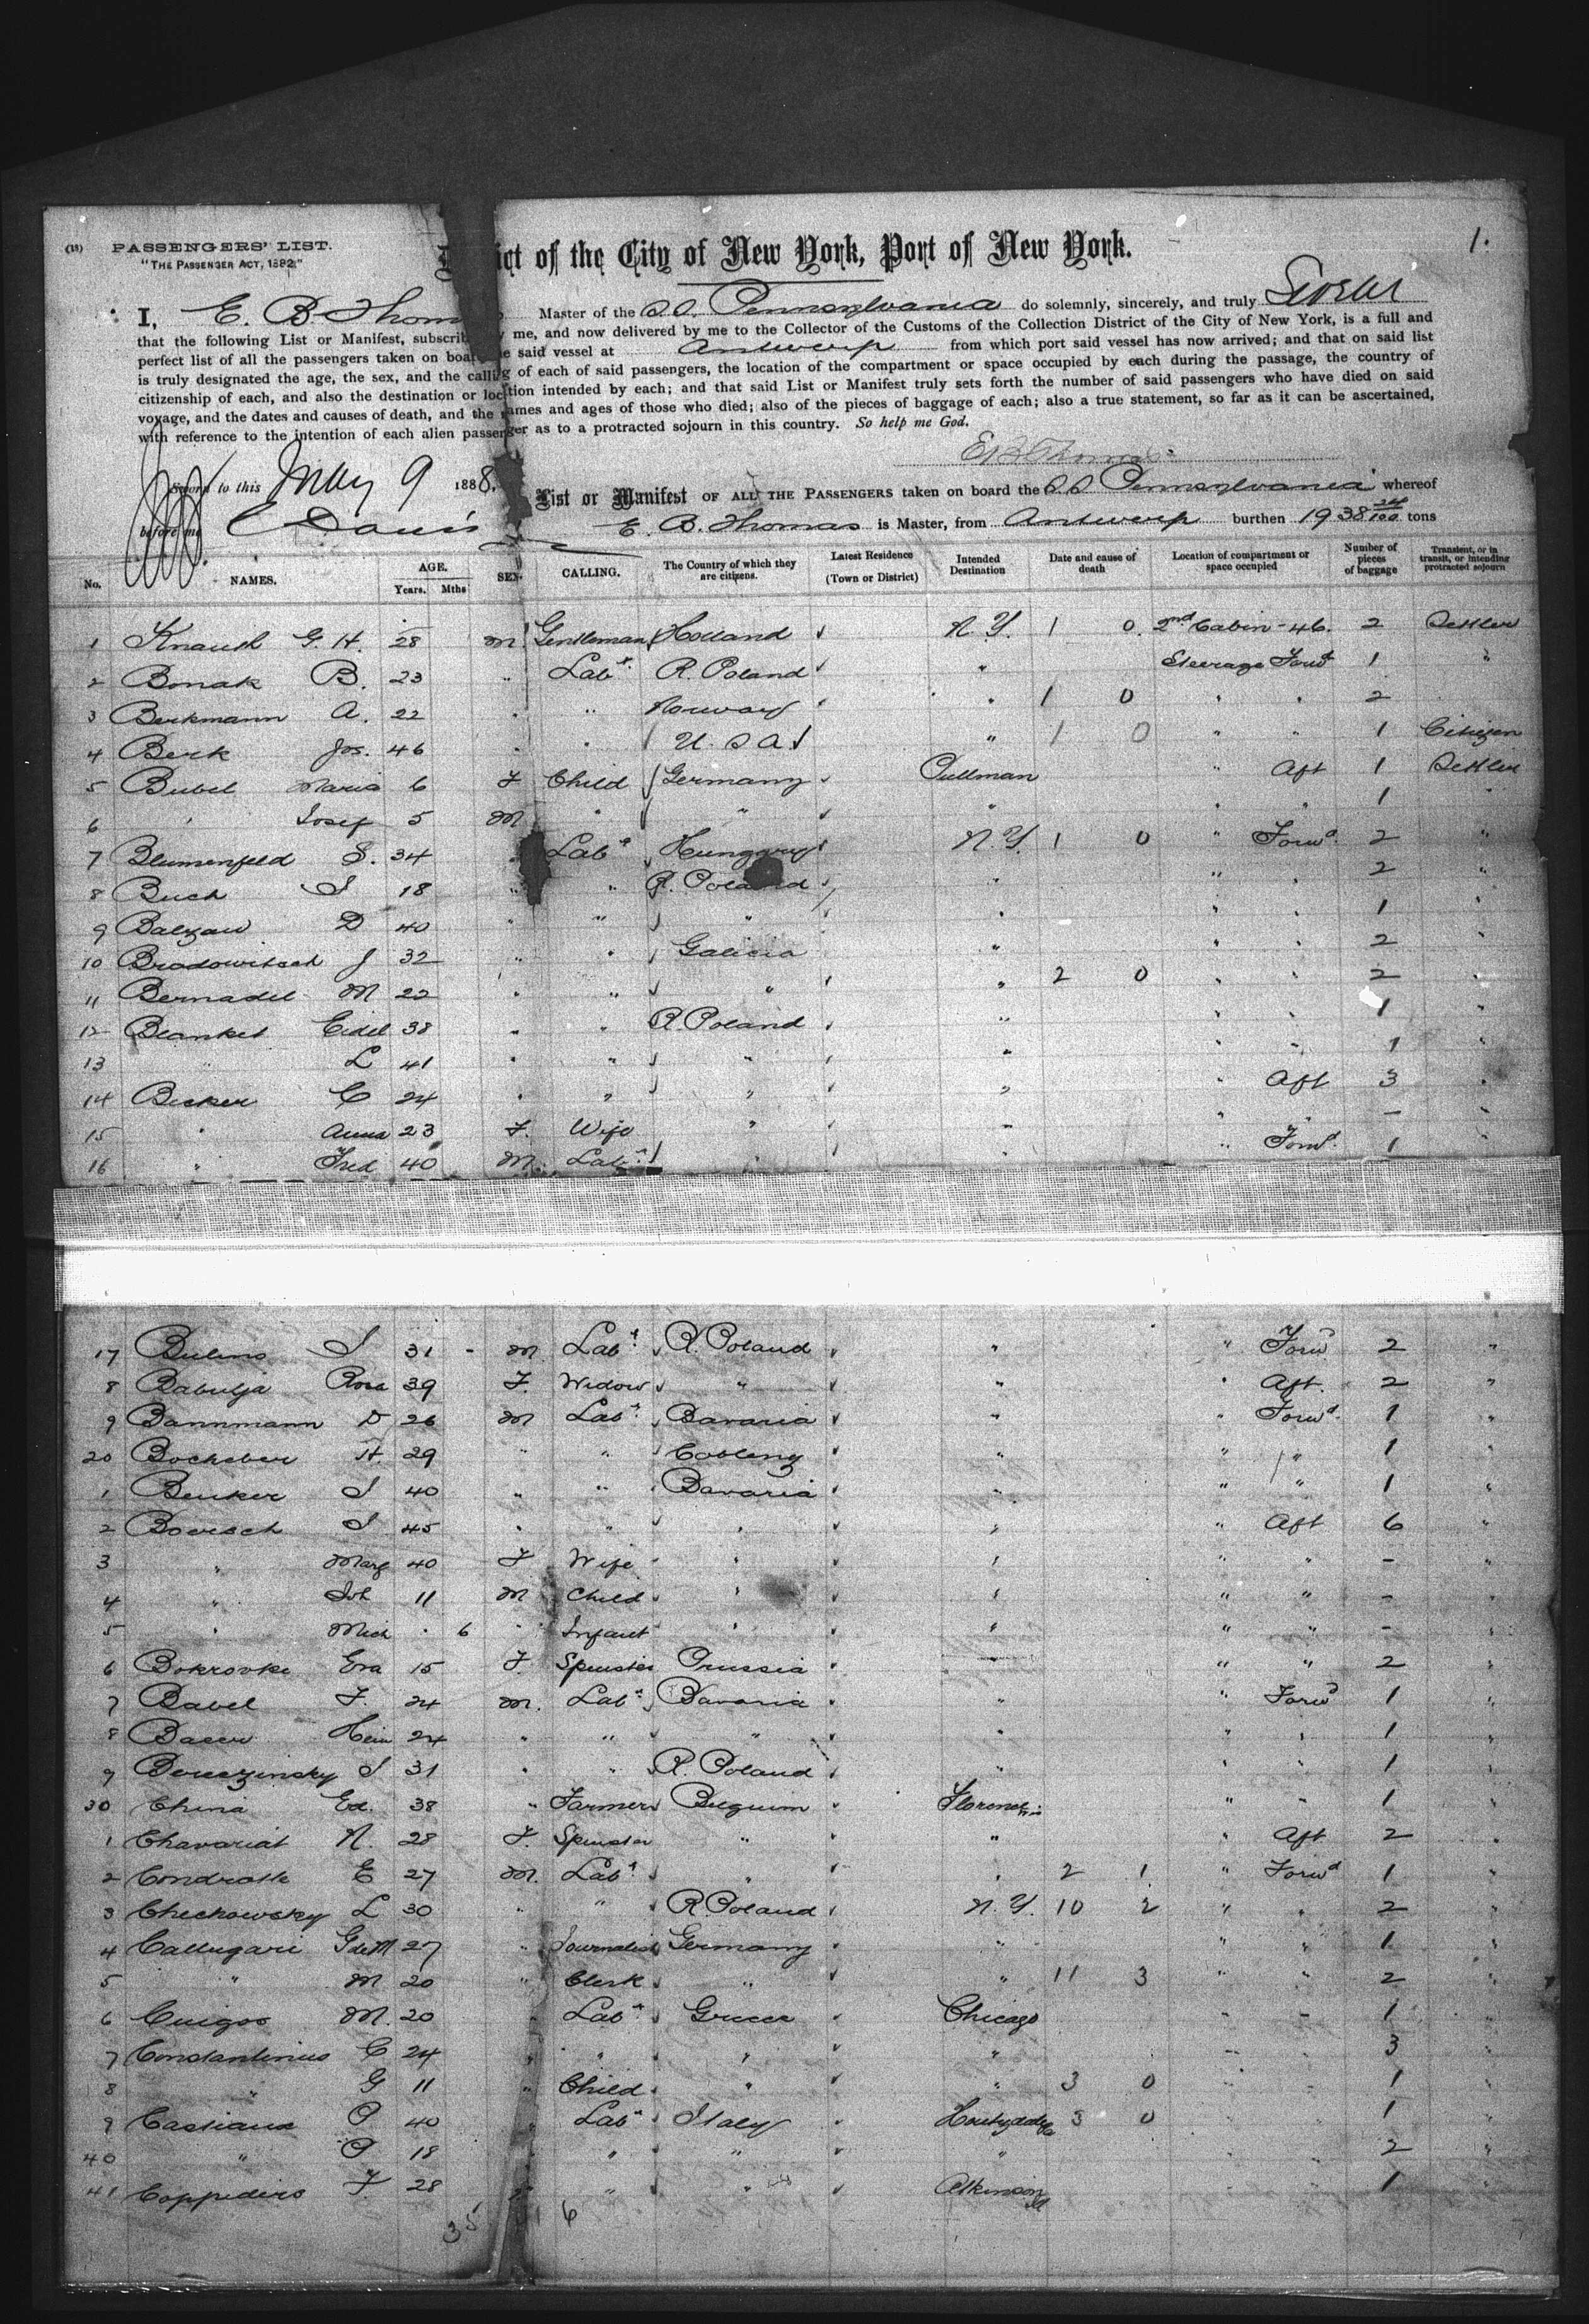 (18) PASSENGERS' LIST.
"THE PASSENGER ACT, 1882."
1.
ict of the City of New York, Port of New York.
I, E. B. Thom Master of the S.S. Pennsylvania do solemnly, sincerely, and truly Swear
that the following List or Manifest, subscrib y me, and now delivered by me to the Collector of the Customs of the Collection District of the City of New York, is a full and
perfect list of all the passengers taken on boar e said vessel at Antwerp from which port said vessel has now arrived; and that on said list
is truly designated the age, the sex, and the calling of each of said passengers, the location of the compartment or space occupied by each during the passage, the country of
citizenship of each, and also the destination or loc tion intended by each; and that said List or Manifest truly sets forth the number of said passengers who have died on said
voyage, and the dates and causes of death, and the names and ages of those who died; also of the pieces of baggage of each; also a true statement, so far as it can be ascertained,
with reference to the intention of each alien passenger as to a protracted sojourn in this country. So help me God.
E B Thomas
Sworn to this May 9 1888,
before me C Davis
List or Manifest OF ALL THE PASSENGERS taken on board the S.S. Pennsylvania whereof
E. B. Thomas is Master, from Antwerp burthen 1938 24/100 tons
No. NAMES. AGE. Years. Mths SEX. CALLING. The Country of which they are citizens. Latest Residence (Town or District) Intended Destination Date and cause of death Location of compartment or space occupied Number of pieces of baggage Transient, or in transit, or intending protracted sojourn
1 G. H. 28 M Gentleman Holland N.Y. 1 0 2nd Cabin - 46. 2 Settler
2 Bonak B. 23 " Labr. R. Poland " Steerage Forwd 1 "
3 Berkmann A. 22 " " Norway " 1 0 " " 2
4 Berk Jos. 46 " " U.S.A. " 1 0 " " 1 Citizen
5 Bubel Maria 6 F Child Germany Pullman " Aft 1 Settler
6 " Josef 5 M " " " " " 1 "
7 Blumenfeld S. 34 " Labr Hungary N.Y. 1 0 " Forwd. 2 "
8 Buch S 18 " " R. Poland " " " 2 "
9 Balzau D 40 " " " " " " 1 "
10 Bradowitsch J 32 " " Galicia " " " 2 "
11 Bernadel M 22 " " " " 2 0 " " 2 "
12 Blanket Eidel 38 " " R. Poland " " " 1 "
13 " L 41 " " " " " " 1 "
14 Becker C 24 " " " " " Aft 3 "
15 " Anna 23 F. Wife " " " " - "
16 " Fred 40 M. Labr. " " " Forwd. 1 "
17 S 31 - M. Labr. R. Poland " " Forwd 2 "
8 Babulja Rosa 39 F. Widow " " " Aft. 2 "
9 Bannmann D 26 M Labr. Bavaria " " Forwd. 1 "
20 Bocheber H. 29 " " Coblenz " " " 1 "
1 Benker S 40 " " Bavaria " " " 1 "
2 Boersch S 45 " " " " " Aft 6 "
3 " Marg 40 F Wife " " " " - "
4 " Joh 11 M Child " " " " - "
5 " Mich " 6 " Infant " " " " - "
6 Bokrovke Eva 15 F. Spinster Prussia " " " 2 "
7 Babel F. 24 M. Labr. Bavaria " " Forwd 1 "
8 Baeer Hein 24 " " " " " " 1 "
9 S 31 " " R. Poland " " " 1 "
30 China Ed. 38 " Farmer Belguim " " 1 "
1 Chavariat N. 28 F. Spinster " " " Aft 2 "
2 E 27 M. Labr. " " 2 1 " Forwd 1 "
3 Chechowsky L 30 " " R. Poland N.Y. 10 2 " " 2 "
4 Callugari 27 " Journalist Germany " " " 1 "
5 " M 20 " Clerk " " 11 3 " " 2 "
6 M. 20 " Labr Greece Chicago " " 1 "
7 Constantinus C 24 " " " " " " 3 "
8 " G 11 " Child " " 3 0 " " 1 "
9 P 40 " Labr Italy 3 0 " " 1 "
40 " P 18 " " " " " " 2 "
41 F. 28 " " " Atkinson Ill " " 1 "
35 6